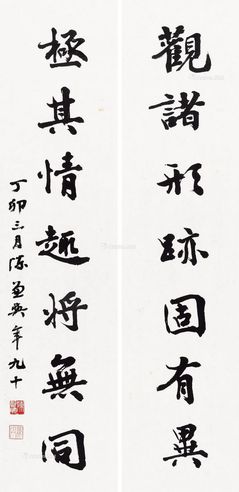 觀諸形跡固有異
極其情趣将無同
丁卯三月陈兼與年九十